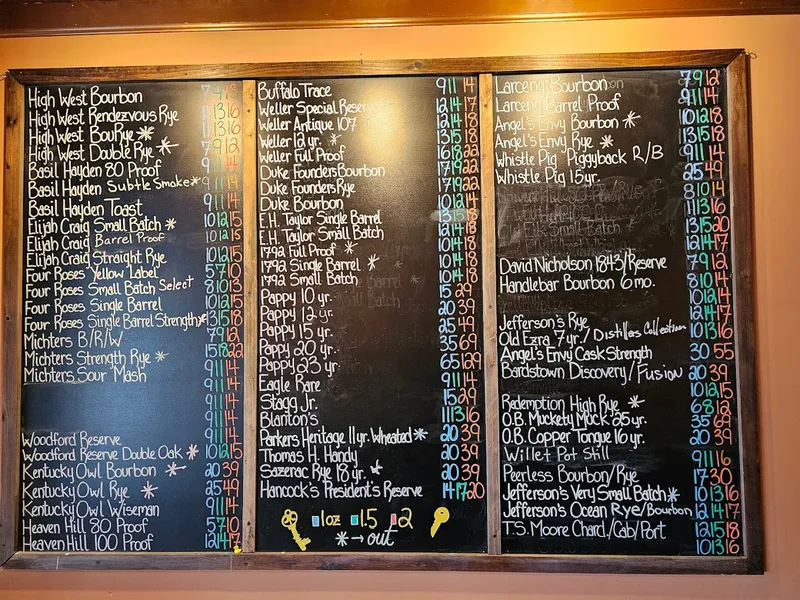 High West Bourbon
High West Rendezvous Rye 13 16
High West BouRye * 13 16
High West Double Rye *
Basil Hayden 80 Proof
Basil Hayden Subtle Smoke * 9 11 14
Basil Hayden Toast 9 11 14
Elijah Craig Small Batch * 10 12 15
Elijah Craig Barrel Proof 10 12 15
Elijah Craig Straight Rye 10 12 15
Four Roses Yellow Label 5 7 10
Four Roses Small Batch Select 8 10 13
Four Roses Single Barrel 10 12 15
Four Roses Single Barrel Strength * 13 15 18
Michters B/R/W 7 9 12
Michters Strength Rye * 15 18 22
Michters Sour Mash 9 11 14
9 11 14
9 11 14
9 11 14
Woodford Reserve 9 11 14
Woodford Reserve Double Oak * 10 12 15
Kentucky Owl Bourbon * 20 39
Kentucky Owl Rye * 25 49
Kentucky Owl Wiseman 9 11 14
Heaven Hill 80 Proof 5 7 10
Heaven Hill 100 Proof 12 14 17
Buffalo Trace 9 11 14
Weller Special Reserve 12 14 17
Weller Antique 107 * 12 14 18
Weller 12 yr. * 13 15 18
Weller Full Proof 16 18 22
Duke Founders Bourbon 17 19 22
Duke Founders Rye 17 19 22
Duke Bourbon 10 12 14
E.H. Taylor Single Barrel 13 15 18
E.H. Taylor Small Batch 12 14 18
1792 Full Proof * 10 14 18
1792 Single Barrel * 10 14 18
1792 Small Batch 10 14 18
Pappy 10 yr. 15 29
Pappy 12 yr. 20 39
Pappy 15 yr. 25 49
Pappy 20 yr. 35 69
Pappy 23 yr. 65 129
Eagle Rare 9 11 14
Stagg Jr. 15 29
Blanton's 11 13 16
Parkers Heritage 11 yr. Wheated * 20 39
Thomas H. Handy 20 39
Sazerac Rye 18 yr. * 20 39
Hancock's President's Reserve 14 17 20
1oz 1.5 2
* → out
Larceny Bourbon 7 9 12
Larceny Barrel Proof 9 11 14
Angel's Envy Bourbon * 10 12 18
Angel's Envy Rye * 13 15 18
Whistle Pig Piggyback R/B 9 11 14
Whistle Pig 15 yr. 25 49
8 10 14
11 13 16
13 15 20
12 14 17
David Nicholson 1843/Reserve 7 9 12
Handlebar Bourbon 6 mo. 8 10 14
10 12 14
Jefferson's Rye 12 14 17
Old Ezra 7 yr. / Distillers Collection 10 13 16
Angel's Envy Cask Strength 30 55
Bardstown Discovery/Fusion 20 39
10 12 15
Redemption High Rye * 6 8 12
O.B. Muckety Muck 25 yr. 35 69
O.B. Copper Tongue 16 yr. 20 39
Willet Pot Still 9 11 16
Peerless Bourbon/Rye 17 30
Jefferson's Very Small Batch * 10 13 16
Jefferson's Ocean Rye/Bourbon 12 14 17
T.S. Moore Chard./Cab/Port 12 15 18
10 13 16